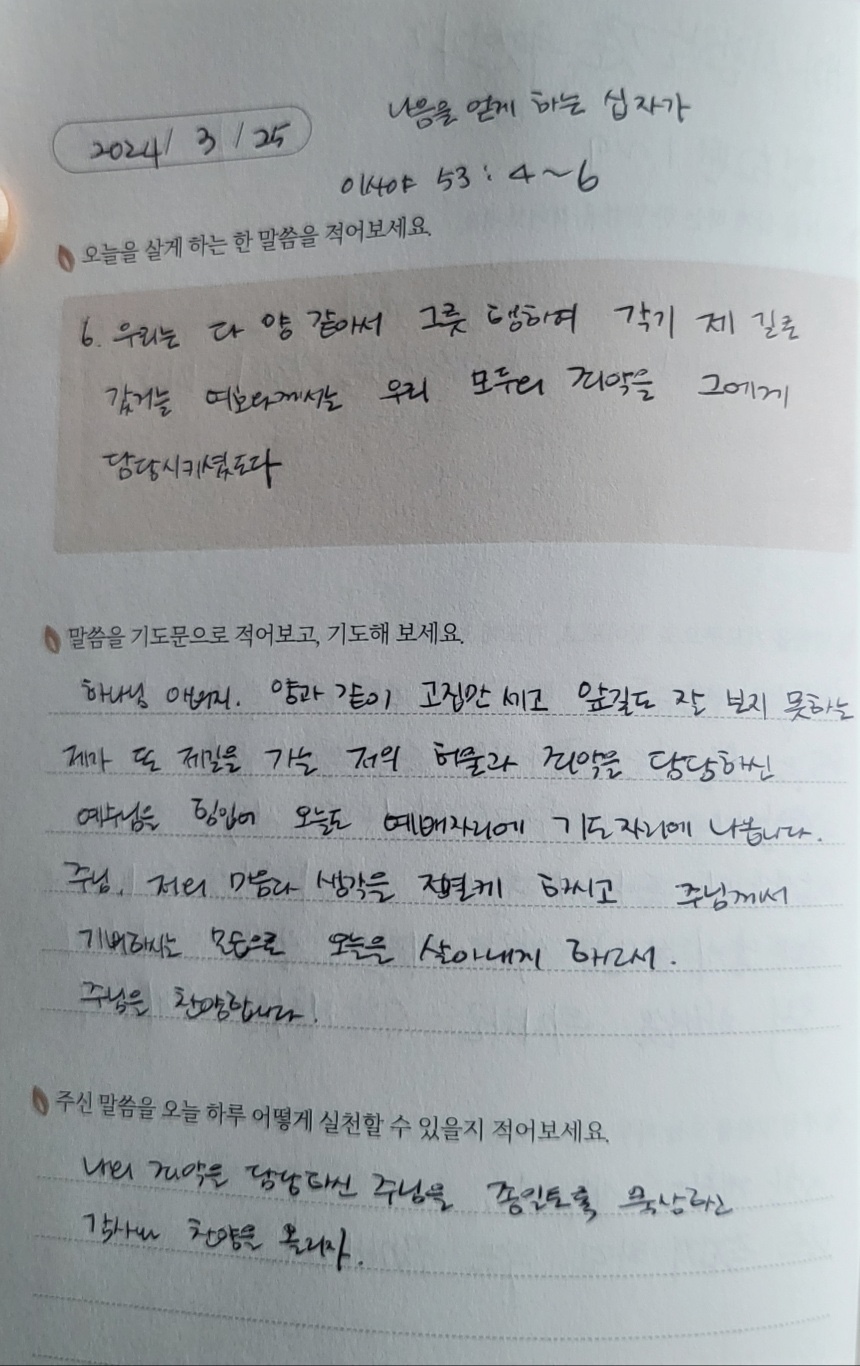 나음을 얻게 하는 십자가
2024 / 3 / 25
이사야 53 : 4~6
오늘을 살게 하는 한 말씀을 적어보세요.
6. 우리는 다 양 같아서 그릇 행하여 각기 제 길로
갔거늘 여호와께서는 우리 모두의 죄악을 그에게
담당시키셨도다
말씀을 기도문으로 적어보고, 기도해 보세요.
하나님 아버지. 양과 같이 고집만 세고 앞길도 잘 보지 못하는
제가 또 제길을 가는 저의 허물과 죄악을 담당하신
예수님을 힘입어 오늘도 예배자리에 기도자리에 나옵니다.
주님. 저의 마음과 생각을 정결케 하시고 주님께서
기뻐하시는 모습으로 오늘을 살아내게 하소서.
주님을 찬양합니다.
주신 말씀을 오늘 하루 어떻게 실천할 수 있을지 적어보세요.
나의 죄악을 담당하신 주님을 종일토록 묵상하고
감사와 찬양을 올리자.